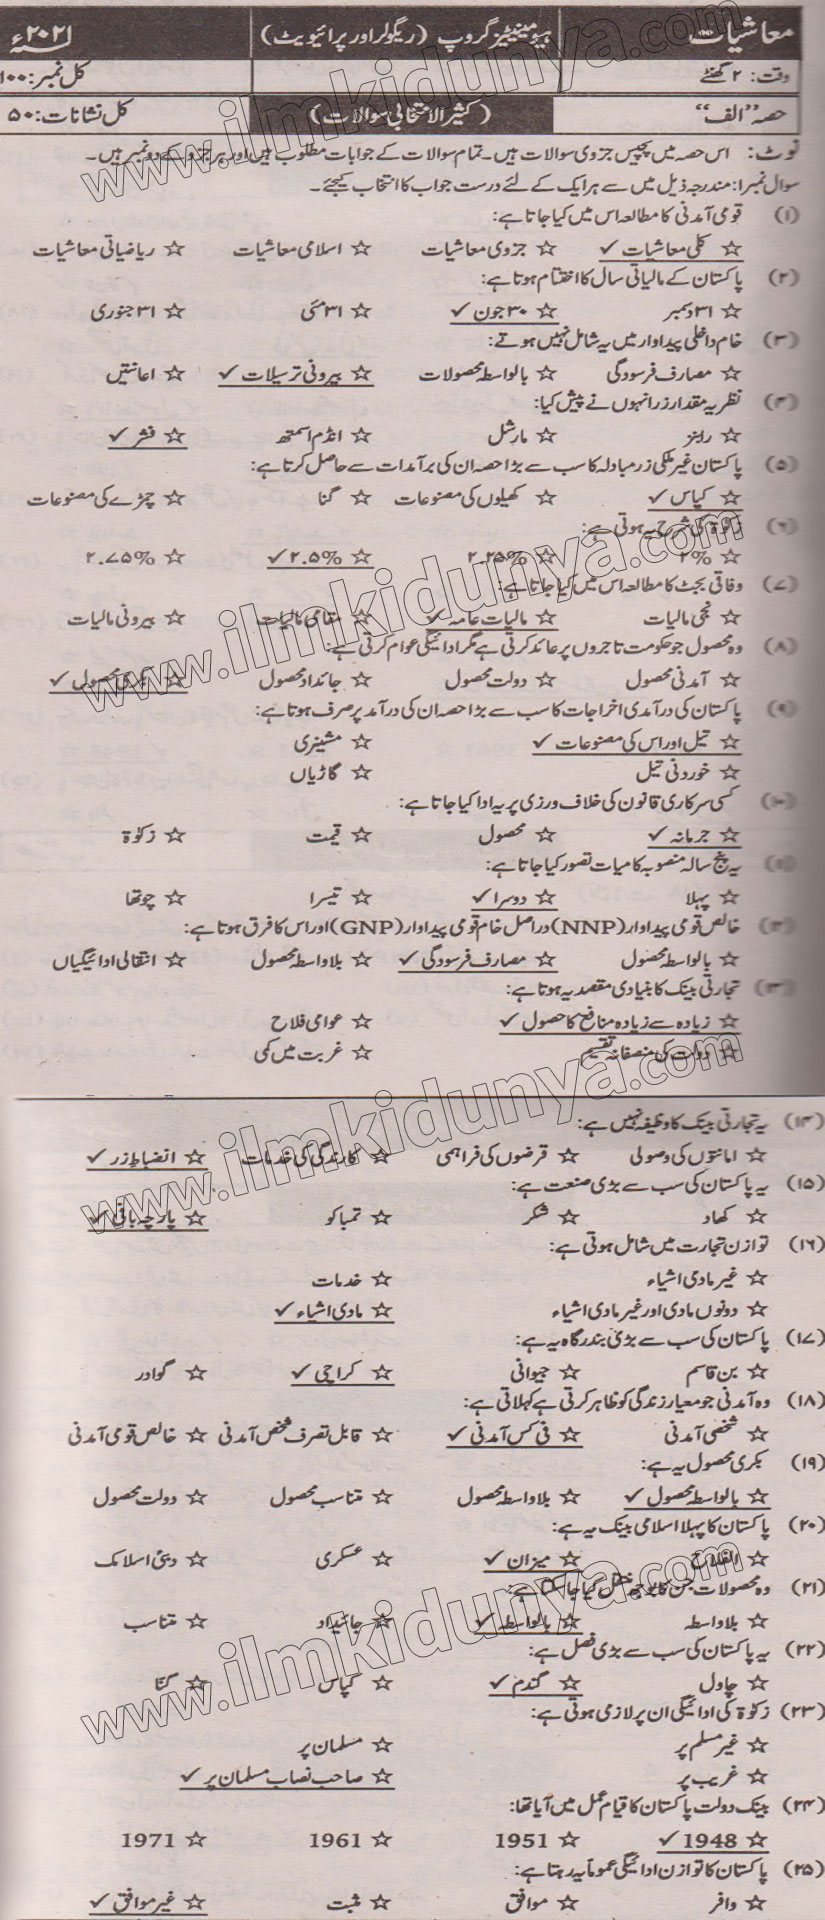 معاشیات ہیومینیٹیز گروپ (ریگولر اور پرائیویٹ) ۲۰۲۱ء
وقت: ۲ گھنٹے کل نمبر: ۱۰۰
حصہ "الف" (کثیر الانتخابی سوالات) کل نشانات: ۵۰
نوٹ: اس حصہ میں پچیس جزوی سوالات ہیں۔ تمام سوالات کے جوابات مطلوب ہیں اور ہر جزو کے دو نمبر ہیں۔
سوال نمبر ۱: مندرجہ ذیل میں سے ہر ایک کے لئے درست جواب کا انتخاب کیجئے۔
(۱) قومی آمدنی کا مطالعہ اس میں کیا جاتا ہے:
☆ کلی معاشیات ✓ ☆ جزوی معاشیات ☆ اسلامی معاشیات ☆ ریاضیاتی معاشیات
(۲) پاکستان کے مالیاتی سال کا اختتام ہوتا ہے:
☆ ۳۱ دسمبر ☆ ۳۰ جون ✓ ☆ ۳۱ مئی ☆ ۳۱ جنوری
(۳) خام داخلی پیداوار میں یہ شامل نہیں ہوتے:
☆ مصارف فرسودگی ☆ بالواسطہ محصولات ☆ بیرونی ترسیلات ✓ ☆ اعانتیں
(۴) نظریہ مقدار زر انہوں نے پیش کیا:
☆ رابنز ☆ مارشل ☆ ایڈم اسمتھ ☆ فشر ✓
(۵) پاکستان غیر ملکی زر مبادلہ کا سب سے بڑا حصہ ان کی برآمدات سے حاصل کرتا ہے:
☆ کپاس ✓ ☆ کھیلوں کی مصنوعات ☆ گنا ☆ چمڑے کی مصنوعات
(۶) زکوٰۃ کی شرح یہ ہوتی ہے:
☆ ۲% ☆ ۲.۲۵% ☆ ۲.۵% ✓ ☆ ۲.۷۵%
(۷) وفاقی بجٹ کا مطالعہ اس میں کیا جاتا ہے:
☆ نجی مالیات ☆ مالیات عامہ ✓ ☆ مقامی مالیات ☆ بیرونی مالیات
(۸) وہ محصول جو حکومت تاجروں پر عائد کرتی ہے مگر ادائیگی عوام کرتی ہے:
☆ آمدنی محصول ☆ دولت محصول ☆ جائداد محصول ☆ بکری محصول ✓
(۹) پاکستان کی درآمدی اخراجات کا سب سے بڑا حصہ ان کی درآمد پر صرف ہوتا ہے:
☆ تیل اور اس کی مصنوعات ✓ ☆ مشینری
☆ خوردنی تیل ☆ گاڑیاں
(۱۰) کسی سرکاری قانون کی خلاف ورزی پر یہ ادا کیا جاتا ہے:
☆ جرمانہ ✓ ☆ محصول ☆ قیمت ☆ زکوٰۃ
(۱۱) یہ پنج سالہ منصوبہ کامیاب تصور کیا جاتا ہے:
☆ پہلا ☆ دوسرا ✓ ☆ تیسرا ☆ چوتھا
(۱۲) خالص قومی پیداوار (NNP) دراصل خام قومی پیداوار (GNP) اور اس کا فرق ہوتا ہے:
☆ بالواسطہ محصول ☆ مصارف فرسودگی ✓ ☆ بلاواسطہ محصول ☆ انتقالی ادائیگیاں
(۱۳) تجارتی بینک کا بنیادی مقصد یہ ہوتا ہے:
☆ زیادہ سے زیادہ منافع کا حصول ✓ ☆ عوامی فلاح
☆ دولت کی منصفانہ تقسیم ☆ غربت میں کمی
(۱۴) یہ تجارتی بینک کا وظیفہ نہیں ہے:
☆ امانتوں کی وصولی ☆ قرضوں کی فراہمی ☆ کارندگی کی خدمات ☆ انضباط زر ✓
(۱۵) یہ پاکستان کی سب سے بڑی صنعت ہے:
☆ کھاد ☆ شکر ☆ تمباکو ☆ پارچہ بافی ✓
(۱۶) توازن تجارت میں شامل ہوتی ہے:
☆ غیر مادی اشیاء ☆ خدمات
☆ دونوں مادی اور غیر مادی اشیاء ☆ مادی اشیاء ✓
(۱۷) پاکستان کی سب سے بڑی بندرگاہ یہ ہے:
☆ بن قاسم ☆ جیوانی ☆ کراچی ✓ ☆ گوادر
(۱۸) وہ آمدنی جو معیار زندگی کو ظاہر کرتی ہے کہلاتی ہے:
☆ شخصی آمدنی ☆ فی کس آمدنی ✓ ☆ قابل تصرف شخصی آمدنی ☆ خالص قومی آمدنی
(۱۹) بکری محصول یہ ہے:
☆ بالواسطہ محصول ✓ ☆ بلاواسطہ محصول ☆ متناسب محصول ☆ دولت محصول
(۲۰) پاکستان کا پہلا اسلامی بینک یہ ہے:
☆ الفلاح ☆ میزان ✓ ☆ عسکری ☆ دبئی اسلامک
(۲۱) وہ محصولات جن کا بوجھ منتقل کیا جا سکتا ہے:
☆ بلاواسطہ ☆ بالواسطہ ✓ ☆ جائیداد ☆ متناسب
(۲۲) یہ پاکستان کی سب سے بڑی فصل ہے:
☆ چاول ☆ گندم ✓ ☆ کپاس ☆ گنّا
(۲۳) زکوٰۃ کی ادائیگی ان پر لازمی ہوتی ہے:
☆ غیر مسلم پر ☆ مسلمان پر
☆ غریب پر ☆ صاحب نصاب مسلمان پر ✓
(۲۴) بینک دولت پاکستان کا قیام عمل میں آیا تھا:
☆ 1948 ✓ ☆ 1951 ☆ 1961 ☆ 1971
(۲۵) پاکستان کا توازن ادائیگی عموماً یہ رہتا ہے:
☆ وافر ☆ موافق ☆ مثبت ☆ غیر موافق ✓
www.ilmkidunya.com
www.ilmkidunya.com
www.ilmkidunya.com
www.ilmkidunya.com